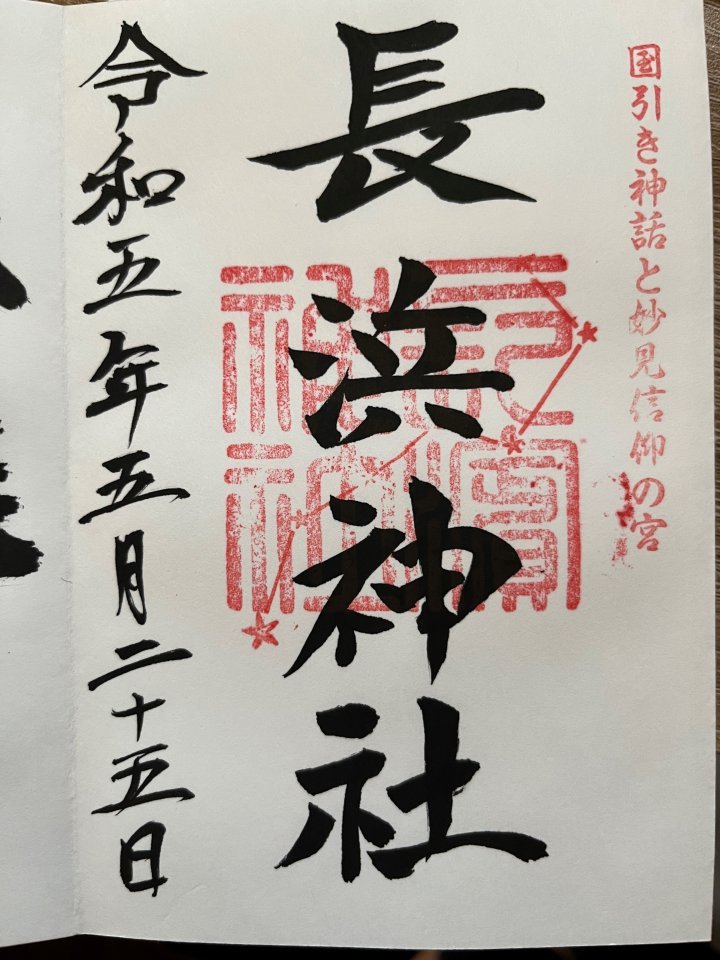 国引き神話と妙見信仰の宮
長浜神社
令和五年五月二十五日